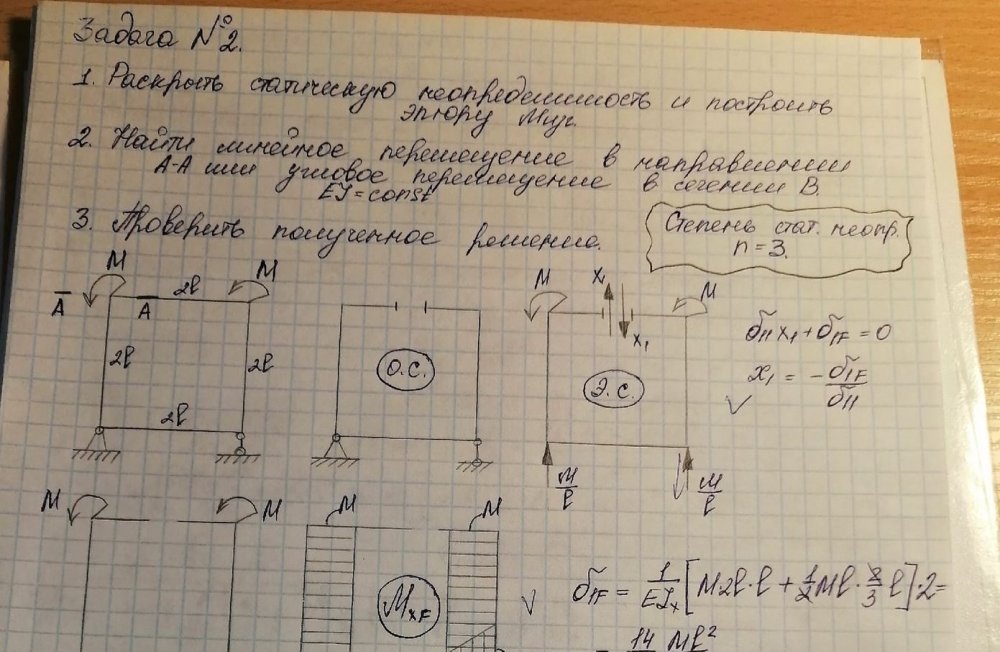 Задача №2.
1. Раскрыть статическую неопределимость и построить
эпюру Mизг.
2. Найти линейное перемещение в направлении
A-A или угловое перемещение в сечении B.
EJ = const
3. Проверить полученное решение.
Степень стат. неопр.
n = 3.
M M 2l
A A
2l 2l
2l
О.С.
M X₁ M
X₁
Э.С.
M/l M/l
δ₁₁x₁ + δ₁F = 0
x₁ = - δ₁F/δ₁₁
M M
M M
MxF
δ₁F = 1/EJx [M2l·l + 1/2 Ml · 2/3 l]·2 =
= 14 Ml²